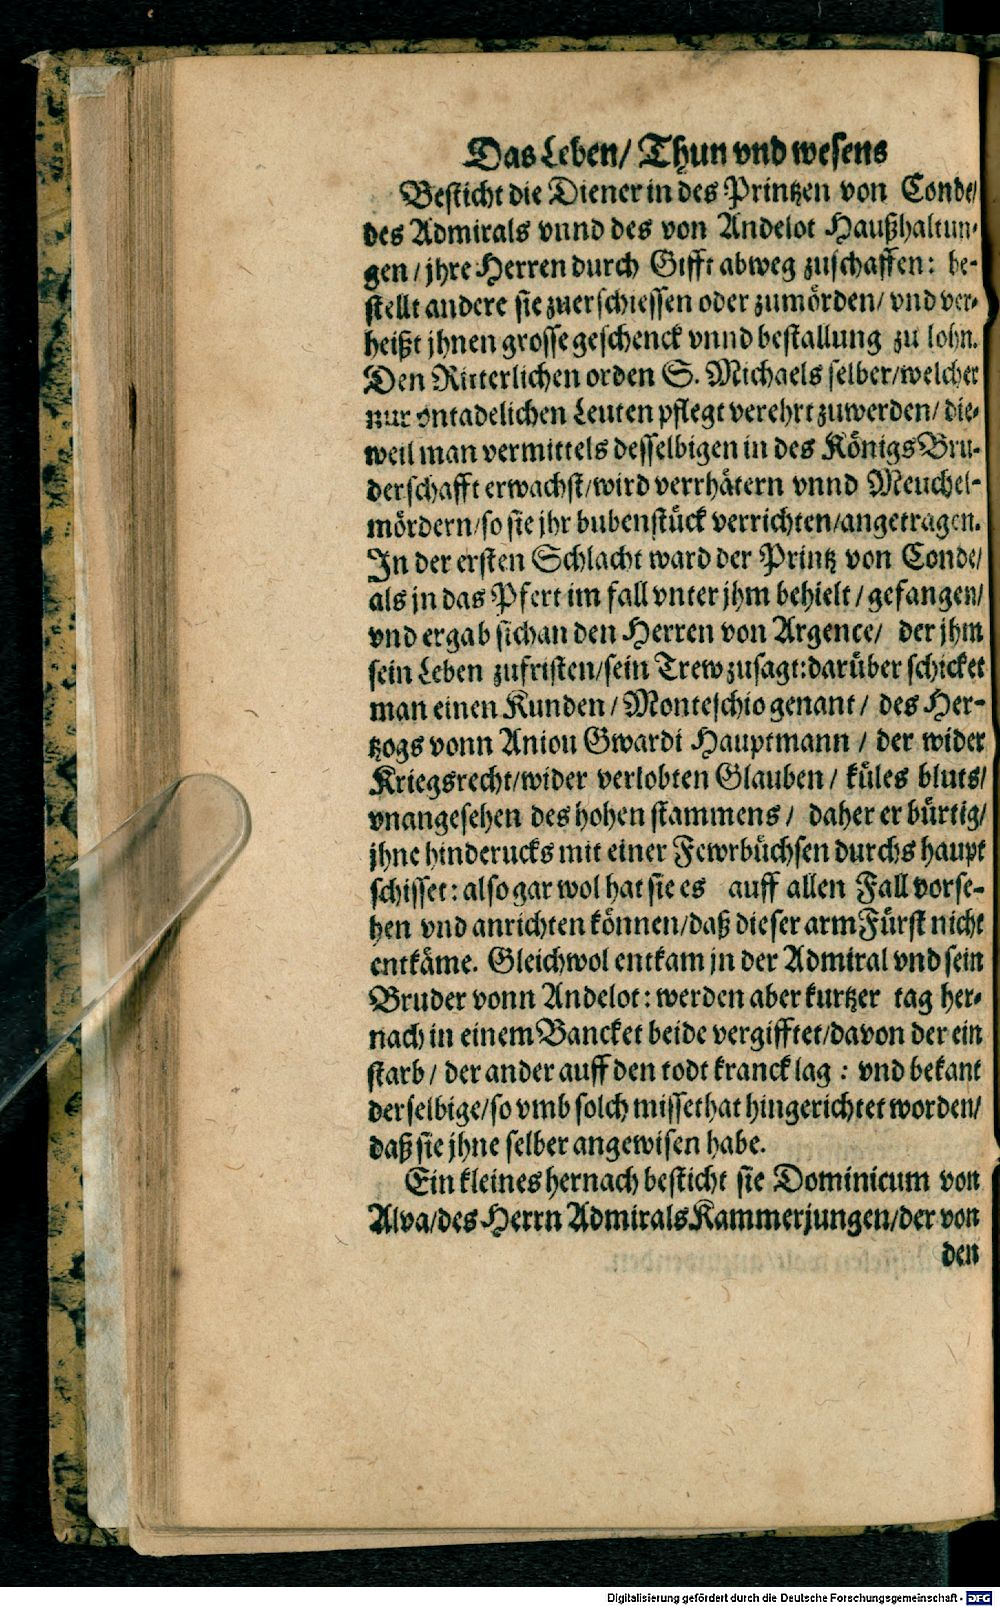 Das Leben/ Thun vnd wesens
Besticht die Diener in des Printzen von Conde/
des Admirals vnnd des von Andelot Haußhaltun-
gen / jhre Herren durch Gifft abweg zuschaffen: be-
stellt andere sie zuerschiessen oder zumörden/ vnd ver-
heißt jhnen grosse geschenck vnnd bestallung zu lohn.
Den Ritterlichen orden S. Michaels selber/welcher
nur vntadelichen Leuten pflegt verehrt zuwerden/ die-
weil man vermittels desselbigen in des Königs Bru-
derschafft erwachst/wird verrhätern vnnd Meuchel-
mördern/so sie jhr bubenstück verrichten/angetragen.
In der ersten Schlacht ward der Printz von Conde/
als jn das Pfert im fall vnter jhm behielt / gefangen/
vnd ergab sich an den Herren von Argence/ der jhm
sein Leben zufristen/sein Trew zusagt:darüber schicket
man einen Kunden / Monteschio genant / des Her-
tzogs vonn Aniou Gwardi Hauptmann / der wider
Kriegsrecht/wider verlobten Glauben / küles bluts/
vnangesehen des hohen stammens / daher er bürtig/
jhne hinderucks mit einer Fewrbüchsen durchs haupt
schisset: also gar wol hat sie es auff allen Fall vorse-
hen vnd anrichten können/daß dieser arm Fürst nicht
entkäme. Gleichwol entkam jn der Admiral vnd sein
Bruder vonn Andelot: werden aber kurtzer tag her-
nach in einem Bancket beide vergifftet/davon der ein
starb / der ander auff den todt kranck lag : vnd bekant
derselbige/so vmb solch missethat hingerichtet worden/
daß sie jhne selber angewisen habe.
Ein kleines hernach besticht sie Dominicum von
Alva/des Herrn Admirals Kammerjungen/der von
den
Digitalisierung gefördert durch die Deutsche Forschungsgemeinschaft - DFG